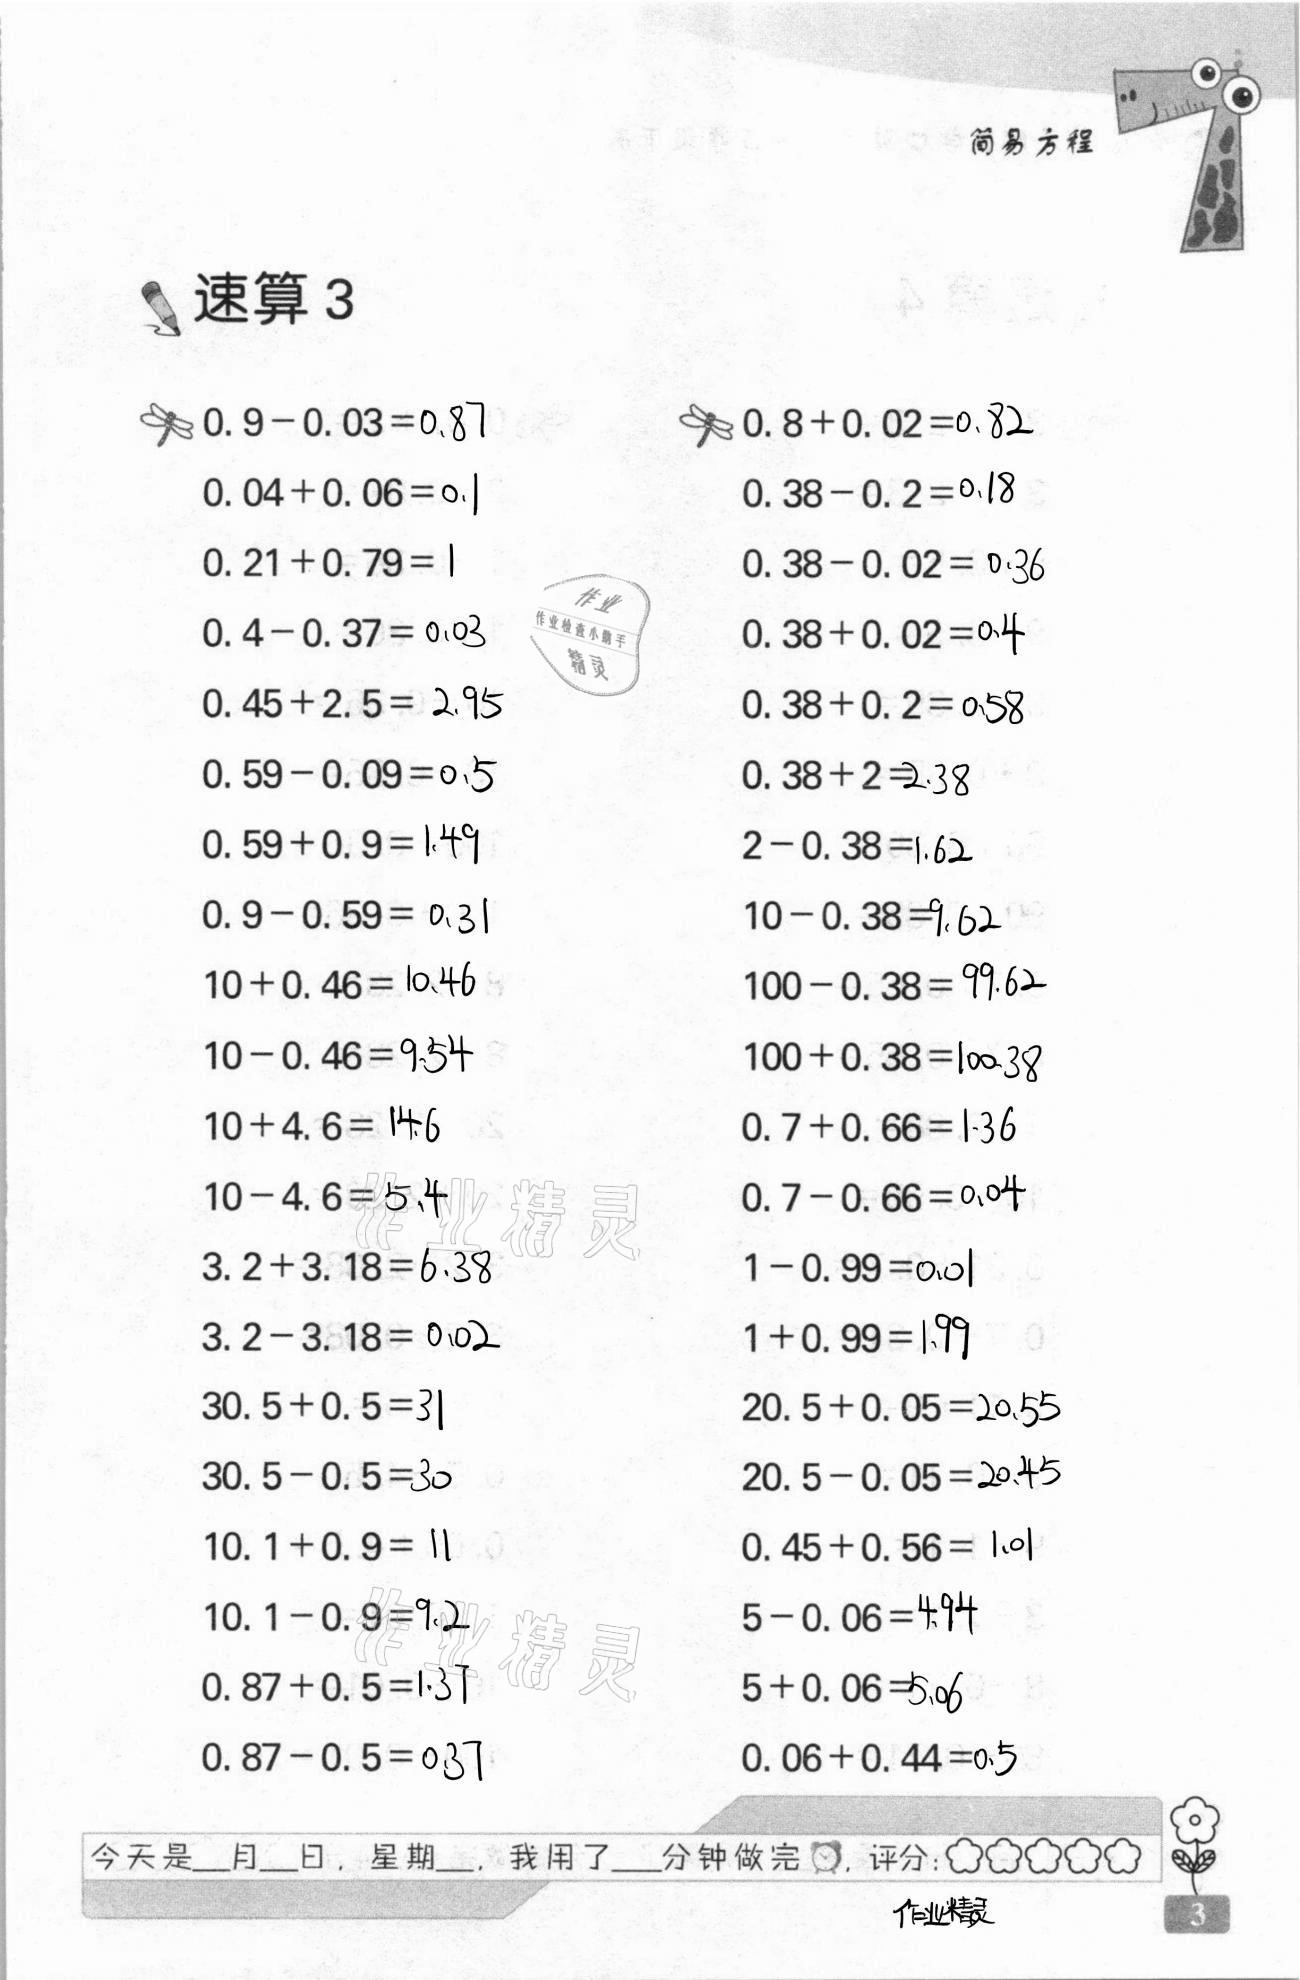 简易方程
速算 3
0.9-0.03=0.87
0.04+0.06=0.1
0.21+0.79=1
0.4-0.37=0.03
0.45+2.5=2.95
0.59-0.09=0.5
0.59+0.9=1.49
0.9-0.59=0.31
10+0.46=10.46
10-0.46=9.54
10+4.6=14.6
10-4.6=5.4
3.2+3.18=6.38
3.2-3.18=0.02
30.5+0.5=31
30.5-0.5=30
10.1+0.9=11
10.1-0.9=9.2
0.87+0.5=1.37
0.87-0.5=0.37
0.8+0.02=0.82
0.38-0.2=0.18
0.38-0.02=0.36
0.38+0.02=0.4
0.38+0.2=0.58
0.38+2=2.38
2-0.38=1.62
10-0.38=9.62
100-0.38=99.62
100+0.38=100.38
0.7+0.66=1.36
0.7-0.66=0.04
1-0.99=0.01
1+0.99=1.99
20.5+0.05=20.55
20.5-0.05=20.45
0.45+0.56=1.01
5-0.06=4.94
5+0.06=5.06
0.06+0.44=0.5
作业
作业检查小助手
精灵
作业精灵
作业精灵
今天是__月__日，星期__，我用了___分钟做完，评分：
作业精灵
3